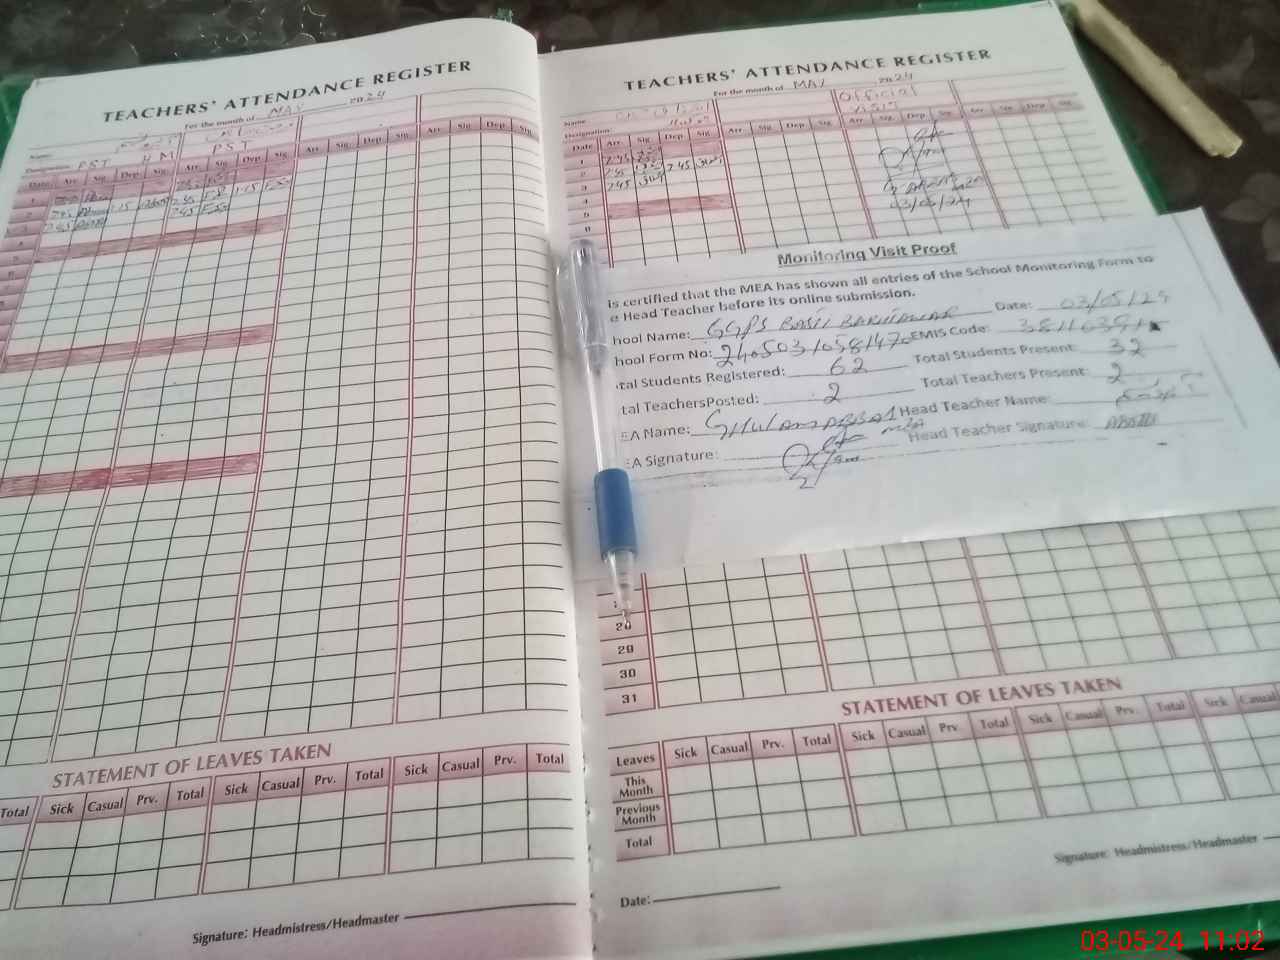 TEACHERS' ATTENDANCE REGISTER
For the month of MAY 2024
Name
Designation PST H M PST
Date Arr Sig Dep Sig Arr Sig Dep Sig Arr Sig Dep Sig Arr Sig Dep Sig
1
2 7.45 1.15 7.45 1.15
3 7.45 7.45
4
STATEMENT OF LEAVES TAKEN
Total Sick Casual Prv. Total Sick Casual Prv. Total Sick Casual Prv. Total
Signature: Headmistress/Headmaster
TEACHERS' ATTENDANCE REGISTER
For the month of MAY 2024
Name Official
Designation VISIT
Date Arr Sig Dep Sig Arr Sig Dep Sig Arr Sig Dep Sig Arr Sig Dep Sig
1 7.45
2 7.45 7.45
3 7.45
4
5
6
03/05/24
Monitoring Visit Proof
is certified that the MEA has shown all entries of the School Monitoring Form to
e Head Teacher before its online submission.
hool Name: GGPS BASTI BAKHTAWAR Date: 03/05/24
hool Form No: EMIS Code:
tal Students Registered: 62 Total Students Present: 32
tal TeachersPosted: 2 Total Teachers Present: 2
EA Name: GHULAM ABBAS Head Teacher Name:
EA Signature: Head Teacher Signature:
28
29
30
31
STATEMENT OF LEAVES TAKEN
Leaves Sick Casual Prv. Total Sick Casual Prv. Total Sick Casual Prv. Total Sick Casual
This Month
Previous Month
Total
Signature: Headmistress/Headmaster
Date:
03-05-24 11:02